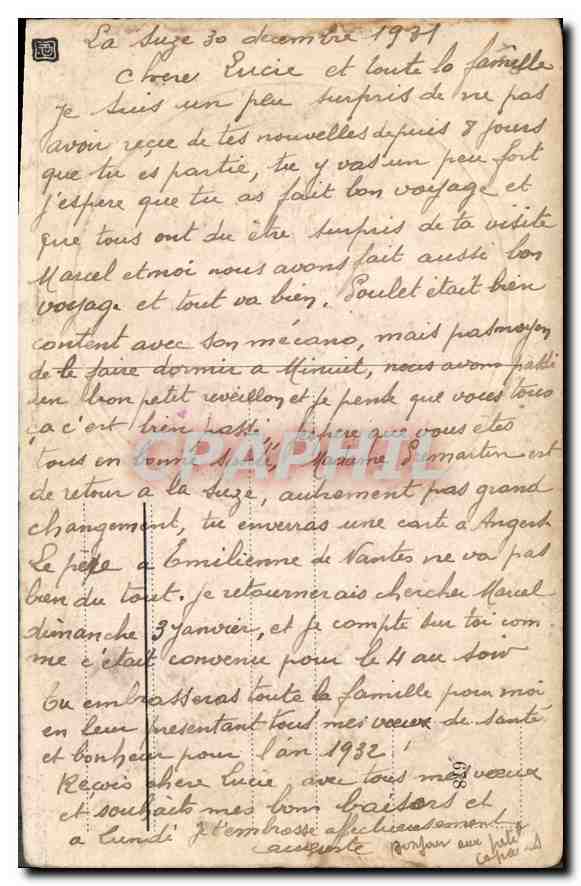 La Suze 30 decembre 1931
Chere Lucie et toute la famille
Je suis un peu surpris de ne pas
avoir reçue de tes nouvelles depuis 8 jours
que tu es partie, tu y vas un peu fort
j'espere que tu as fait bon voyage et
que tous ont du être surpris de ta visite
Marcel et moi nous avons fait aussi bon
voyage et tout va bien. Poulet était bien
content avec son mécano, mais pas moyen
de le faire dormir a Minuit, nous avons passé
un bon petit reveillon et je pense que vous tous
ça c'est bien passé, j'espere que vous etes
tous en bonne santé, Madame Lemartin est
de retour a la Suze, autrement pas grand
changement, tu enverras une carte a Angers
Le père a Emilienne de Nantes ne va pas
bien du tout. je retournerais chercher Marcel
dimanche 3 janvier, et je compte sur toi com-
me c'était convenu pour le 4 au soir
Tu embrasseras toute la famille pour moi
en leur presentant tous mes vœux de santé
et bonheur pour l'an 1932!
Reçois chere Lucie avec tous mes vœux
et souhaits mes bons baisers et
a lundi Je t'embrasse affectueusement
auguste Bonjour aux petits
copains
829
CPAPHIL